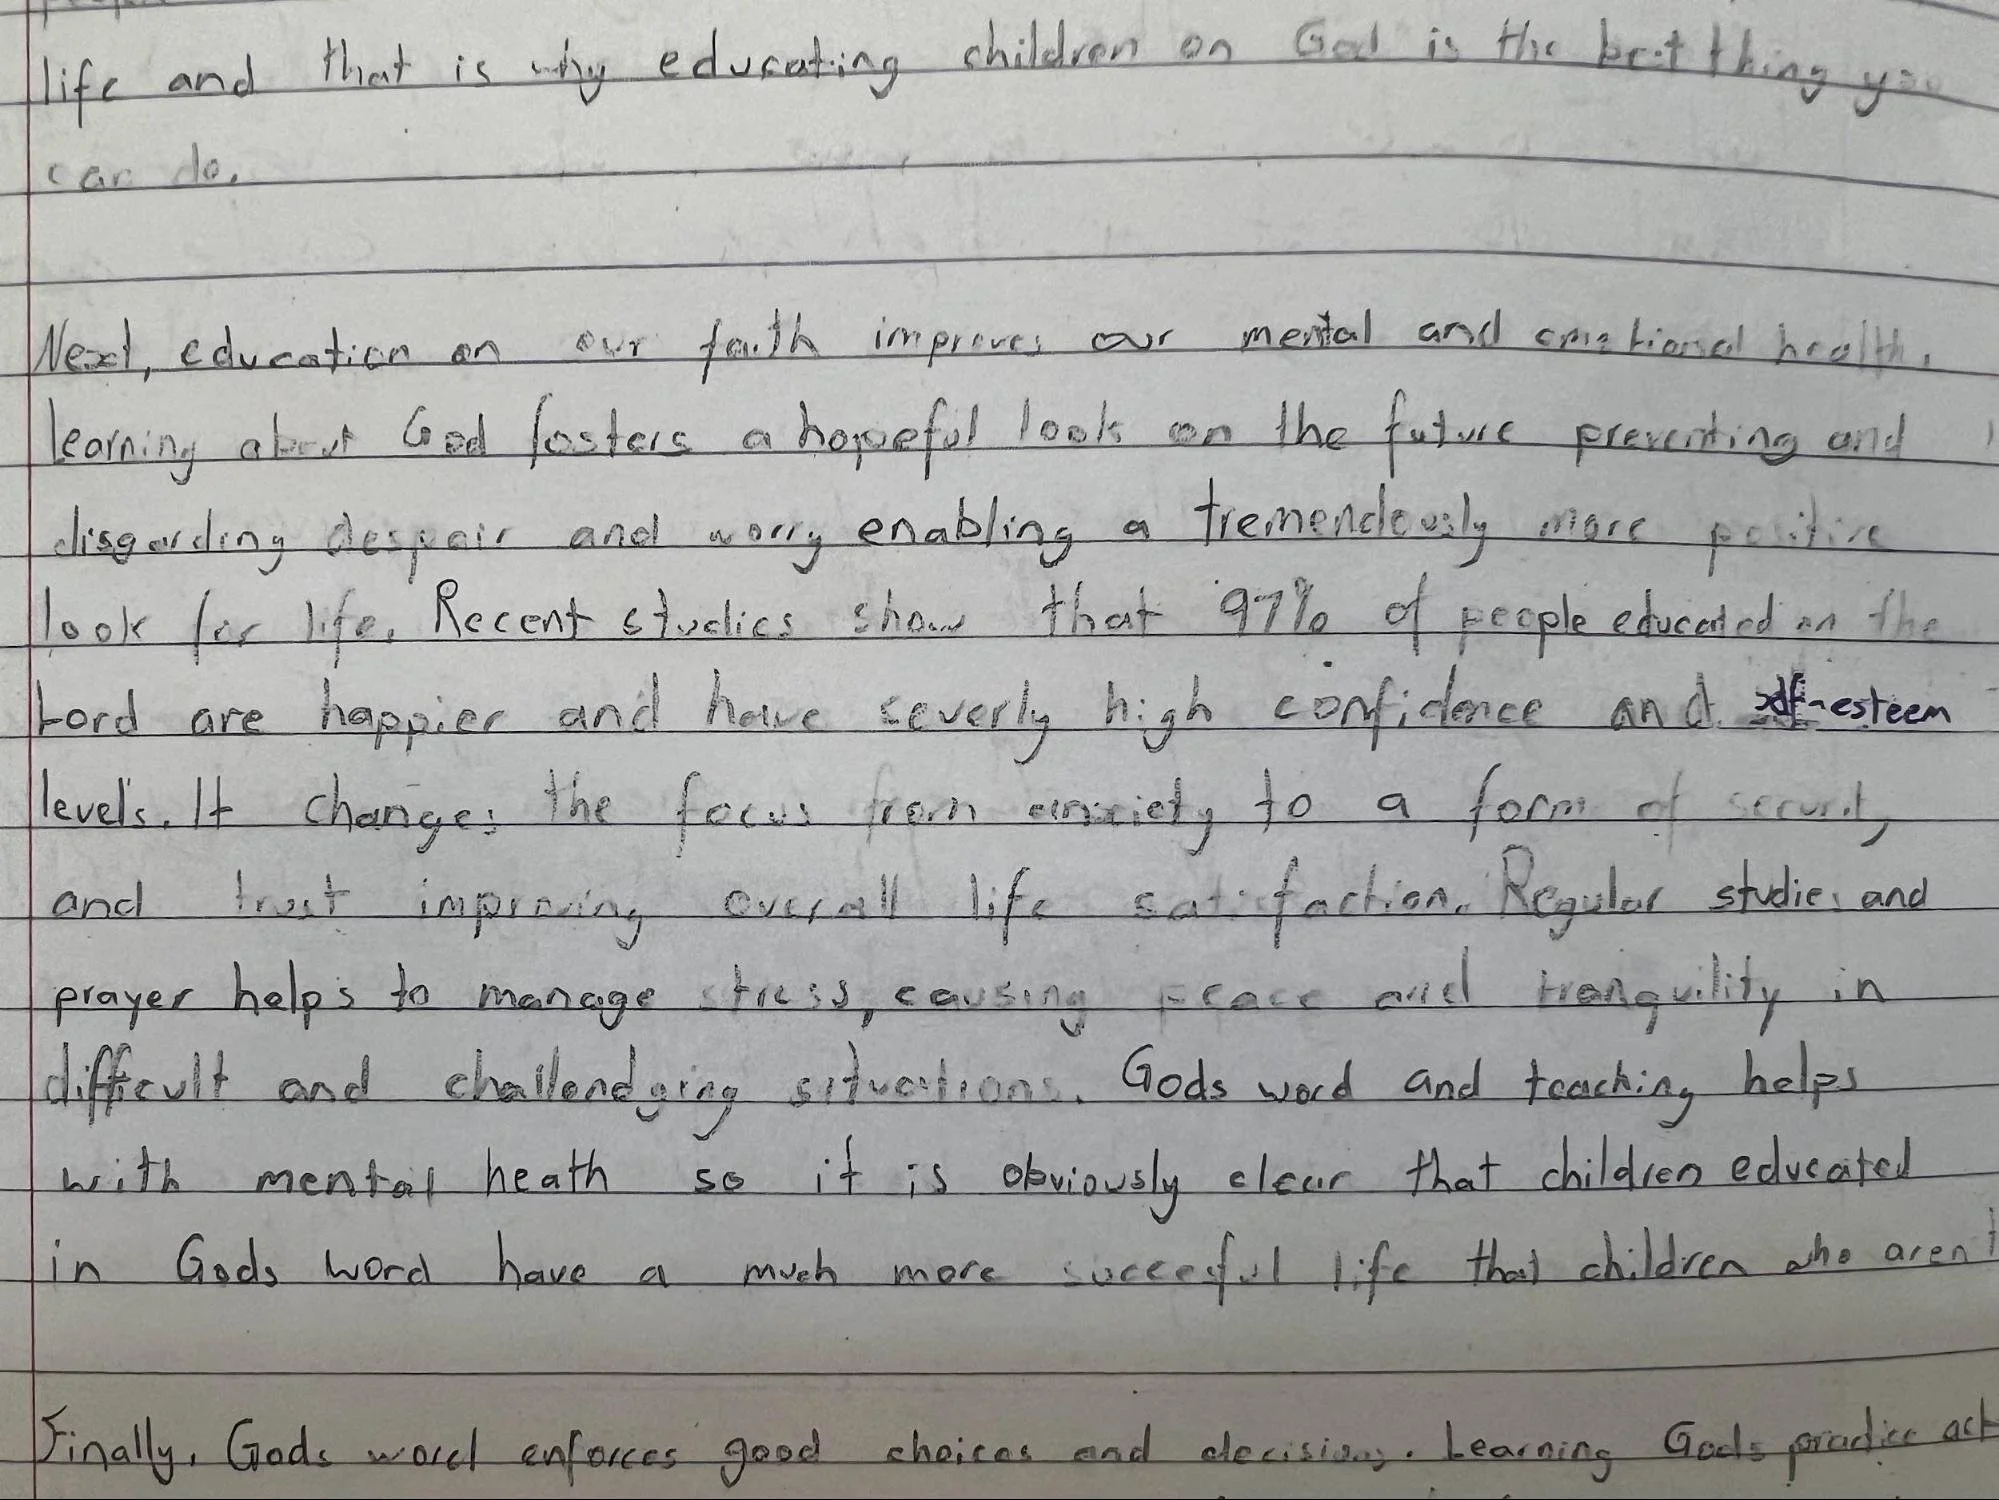 life and that is why educating children on God is the best thing you
can do.
Next, education on our faith improves our mental and emotional health.
learning about God fosters a hopeful look on the future preventing and
disgarding despair and worry enabling a tremendously more positive
look for life. Recent studies show that 97% of people educated on the
Lord are happier and have severly high confidence and self-esteem
levels. It changes the focus from anxiety to a form of security
and trust improving overall life satisfaction. Regular studies and
prayer helps to manage stress, causing peace and tranquility in
difficult and challendging situations. Gods word and teaching helps
with mental heath so it is obviously clear that children educated
in Gods word have a much more succesful life that children who aren't
Finally, Gods word enforces good choices and decisions. Learning Gods practice act